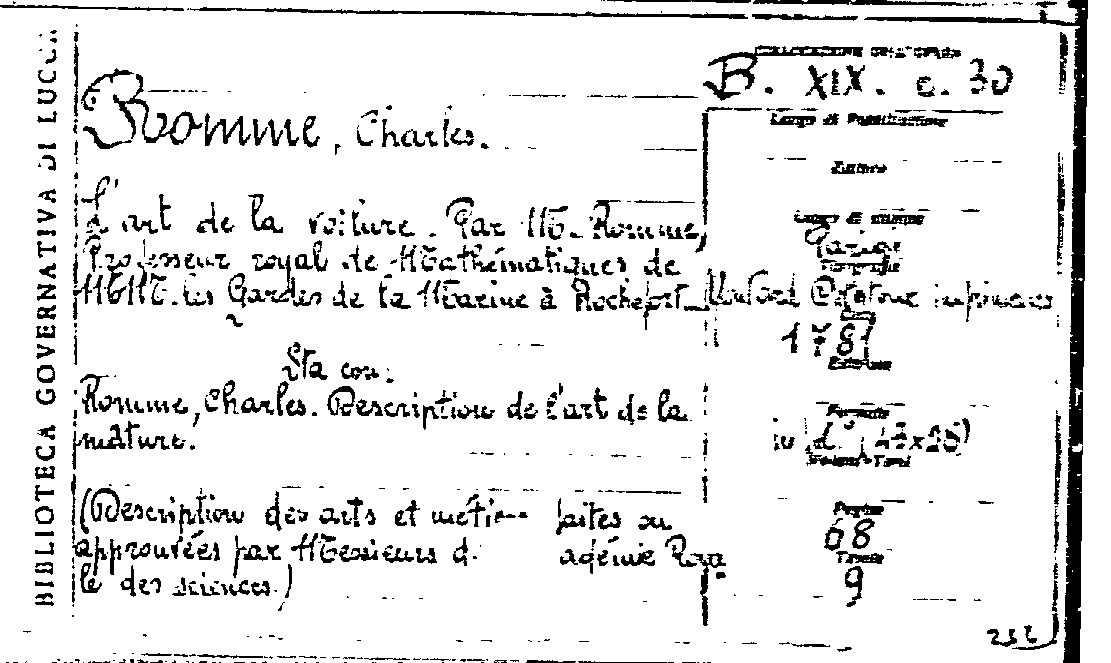 BIBLIOTECA GOVERNATIVA DI LUCCA
COLLOCAZIONE DELL'OPERA
B. XIX. c. 30
Romme, Charles.
Luogo di Pubblicazione
Editore
L'art de la voiture. Par M. Romme,
Professeur royal de Mathématiques de
MM. les Gardes de la Marine à Rochefort
Luogo di stampa
Parigi
Tipografia
imprimeurs
1781
Edizione
Sta con:
Romme, Charles. Description de l'art de la
mâture.
Formato
in
Volumi-Tomi
(Description des arts et métie faites ou
approuvées par Messieurs d. adémie Roya
le des sciences.)
Pagine
68
Tavole
9
232